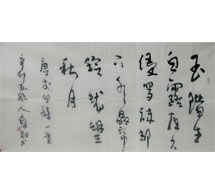 玉階生
白露夜久
侵羅襪却
下水晶簾
玲瓏望
秋月
唐李白詩一首